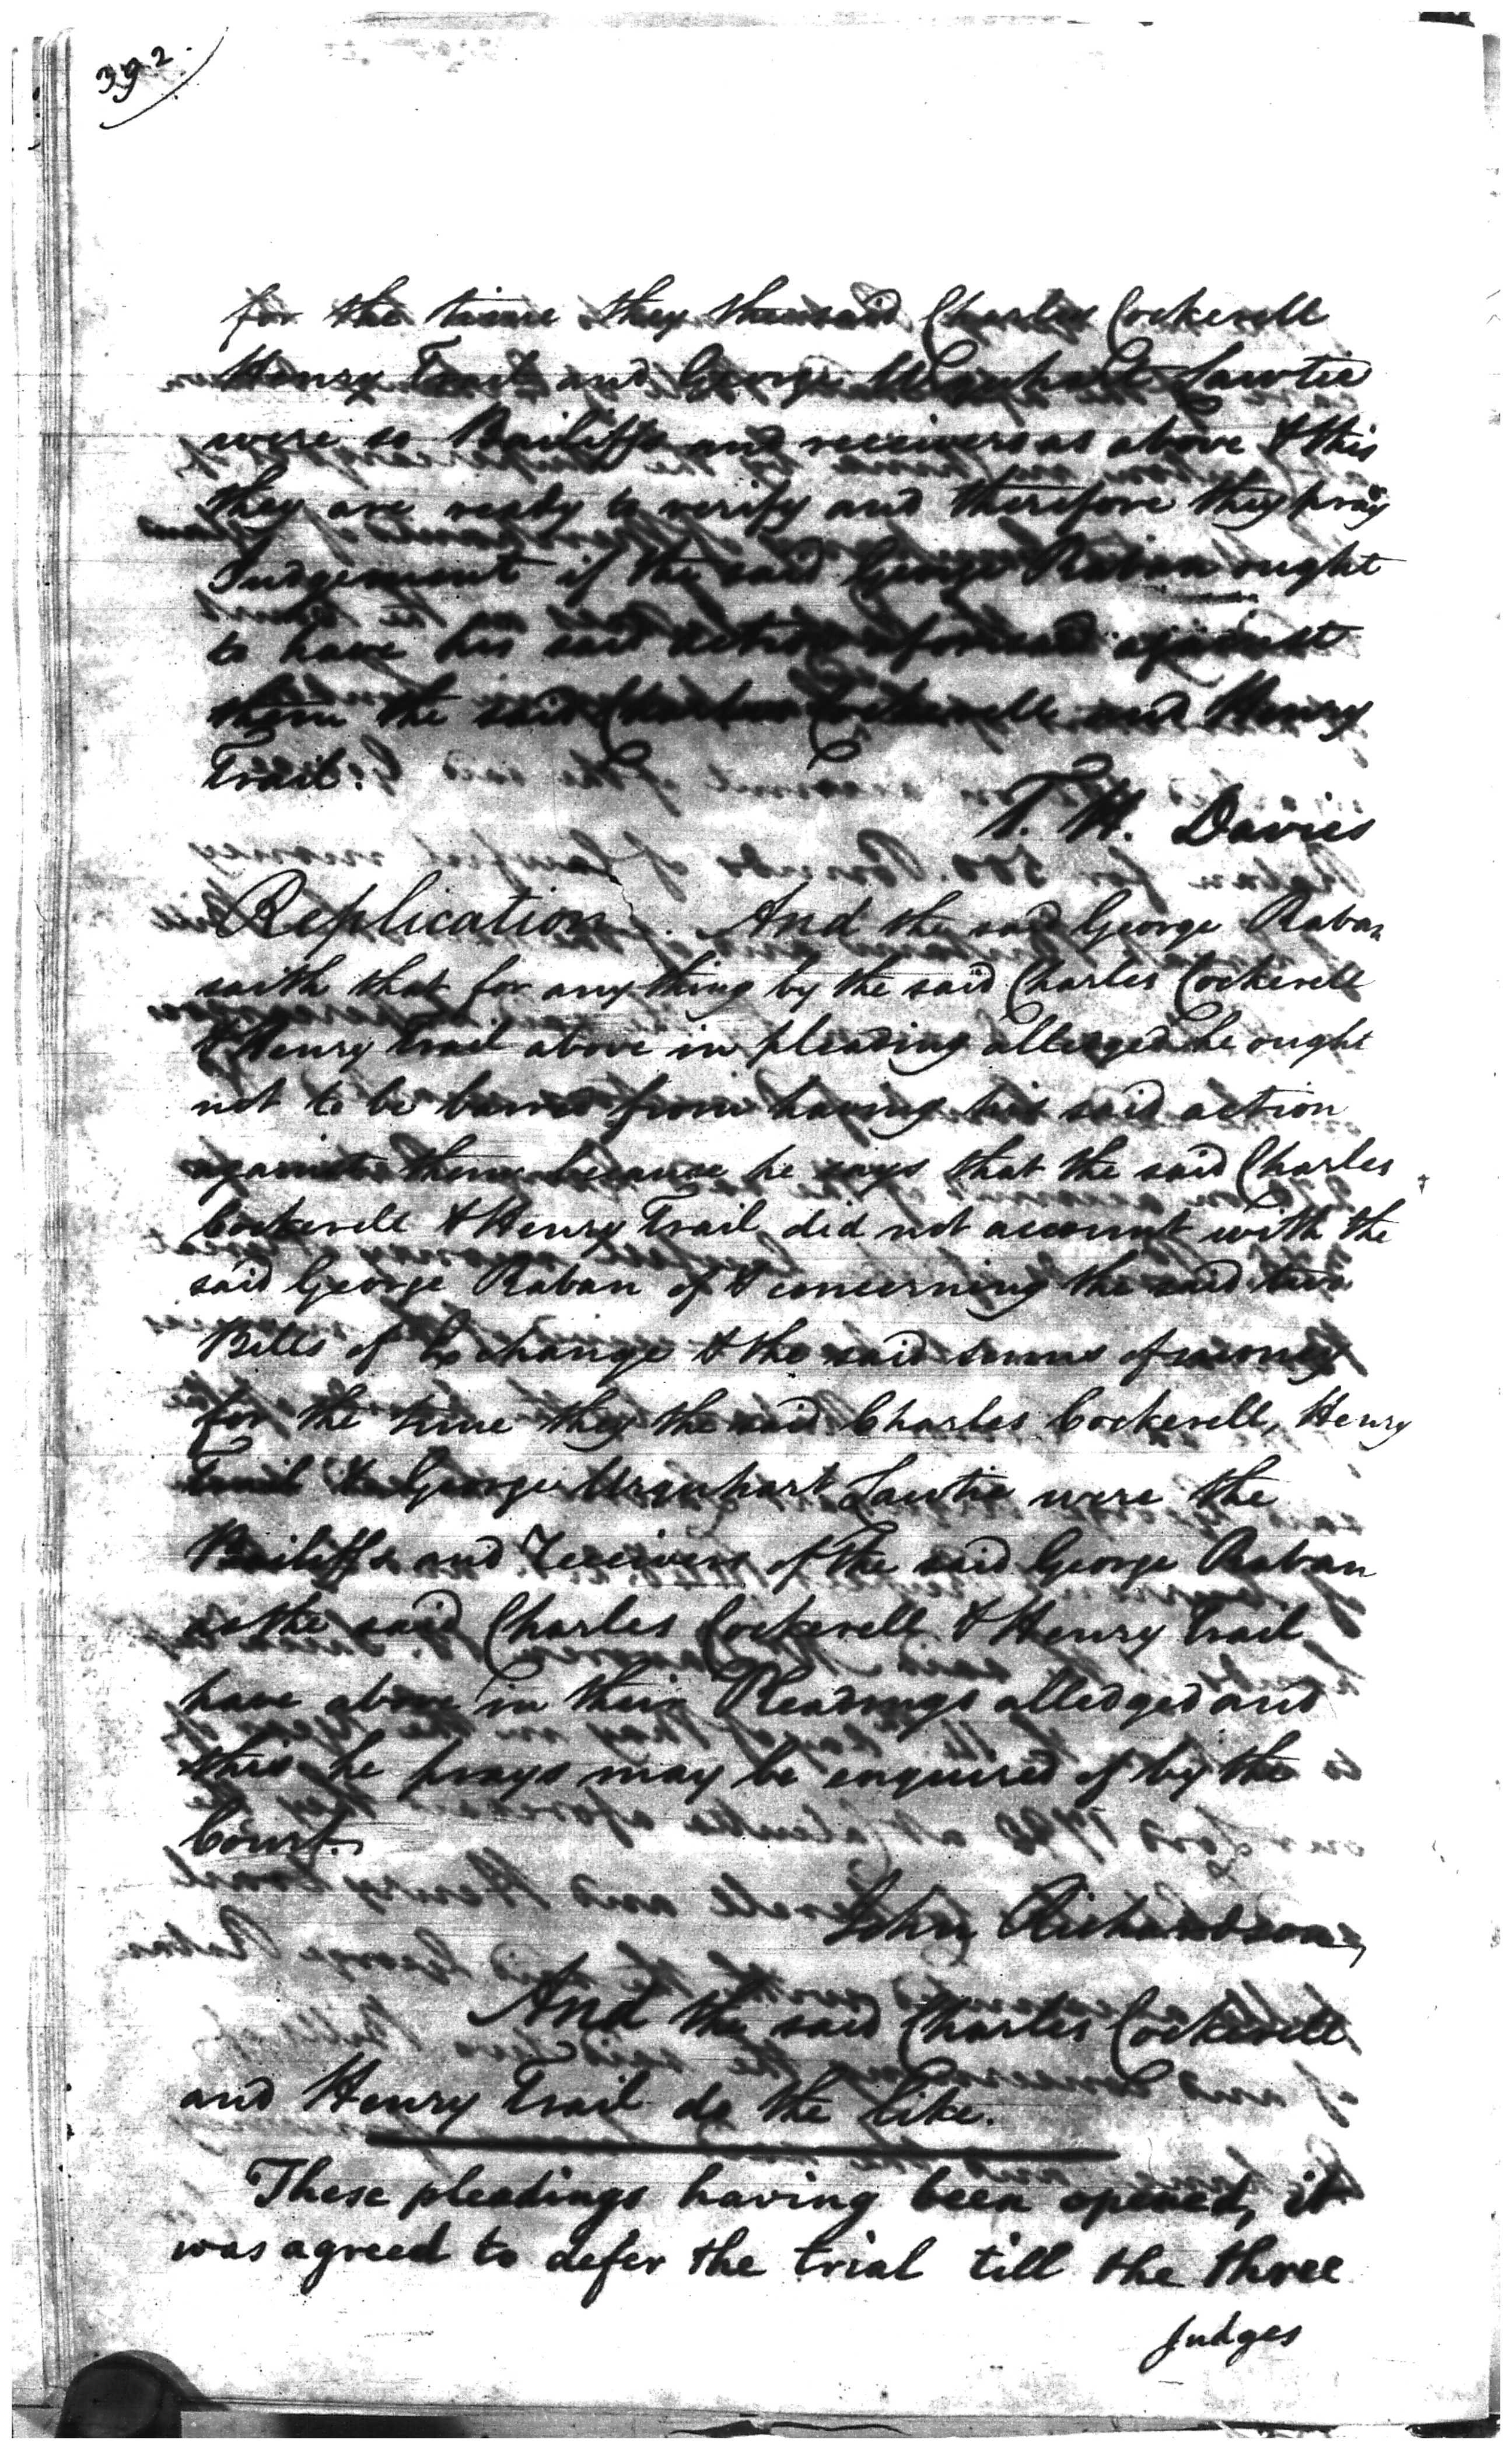 392.
for the time they the said Charles Cockerell
Henry Trail and George Urquhart Lawtie
were so Bailiffs and receivers as above & this
they are ready to verify and therefore they pray
Judgement if the said George Raban ought
to have his said action aforesaid against
them the said Charles Cockerell and Henry
Trail.
T. H. Davies
Replication. And the said George Raban
saith that for any thing by the said Charles Cockerell
& Henry Trail above in pleading alledged he ought
not to be barred from having his said action
against them because he says that the said Charles
Cockerell & Henry Trail did not account with the
said George Raban of & concerning the said two
Bills of Exchange & the said sums of money
for the time they the said Charles Cockerell, Henry
Trail & George Urquhart Lawtie were the
Bailiffs and Receivers of the said George Raban
as the said Charles Cockerell & Henry Trail
have above in their Pleadings alledged and
this he prays may be enquired of by the
Court.
John Richardson,
And the said Charles Cockerell
and Henry Trail do the like.
These pleadings having been opened, it
was agreed to defer the trial till the three
Judges